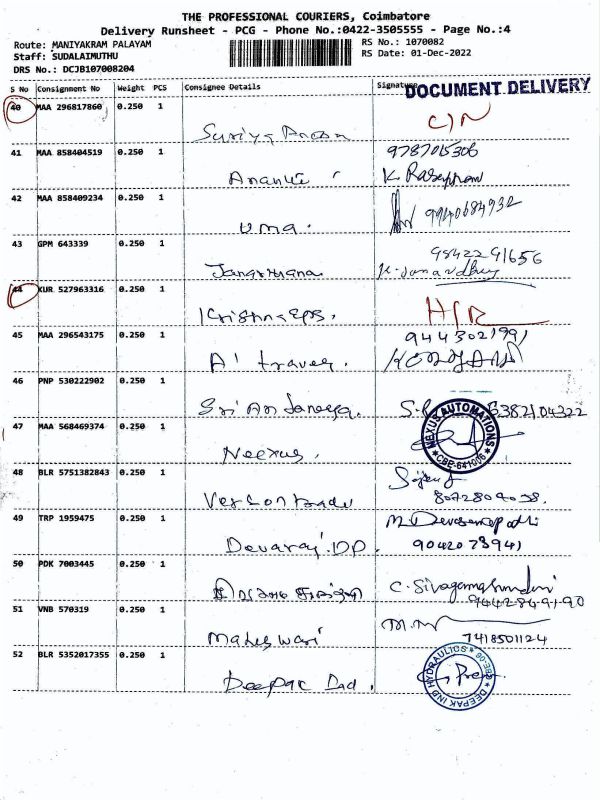 THE PROFESSIONAL COURIERS, Coimbatore
Delivery Runsheet - PCG - Phone No.:0422-3505555 - Page No.:4
Route: MANIYAKRAM PALAYAM
RS No.: 1070082
Staff: SUDALAIMUTHU
RS Date: 01-Dec-2022
DRS No.: DCJB107008204
S No Consignment No Weight PCS Consignee Details Signature
DOCUMENT DELIVERY
40 MAA 296817860 0.250 1
C/N
Suriya
41 MAA 858404519 0.250 1
9787015306
K.
42 MAA 858409234 0.250 1
9940684932
Uma.
43 GPM 643339 0.250 1
9842291656
Janarthana
44 KUR 527963316 0.250 1
Krishna
45 MAA 296543175 0.250 1
9443021991
A1 traves.
46 PNP 530222902 0.250 1
Sri Anjaneya. 6382104322
47 MAA 568469374 0.250 1
NEXUS AUTOMATIONS
CBE-641006
Neexus.
48 BLR 5751382843 0.250 1
8072809038.
49 TRP 1959475 0.250 1
Devaraj.DP.
9042073941
50 PDK 7003445 0.250 1
C. Sivagamasundari
9442849190
51 VNB 570319 0.250 1
Maheswari
7418501124
52 BLR 5352017355 0.250 1
DEEPAK IND HYDRAULICS
CBE-06
Deepac Ind.